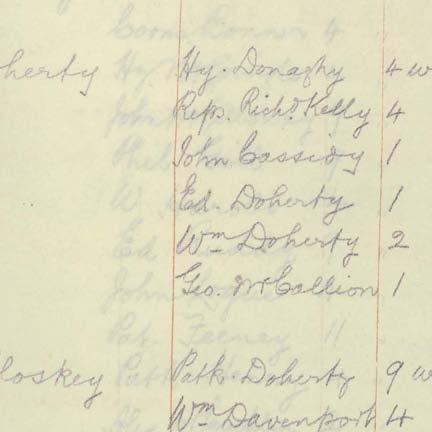 herty Hy. Donaghy 4 w
Reps. Richd. Kelly 4
John Cassidy 1
Ed. Doherty 1
Wm Doherty 2
Geo. McCallion 1
loskey Patk. Doherty 9 w
Wm Davenport 4